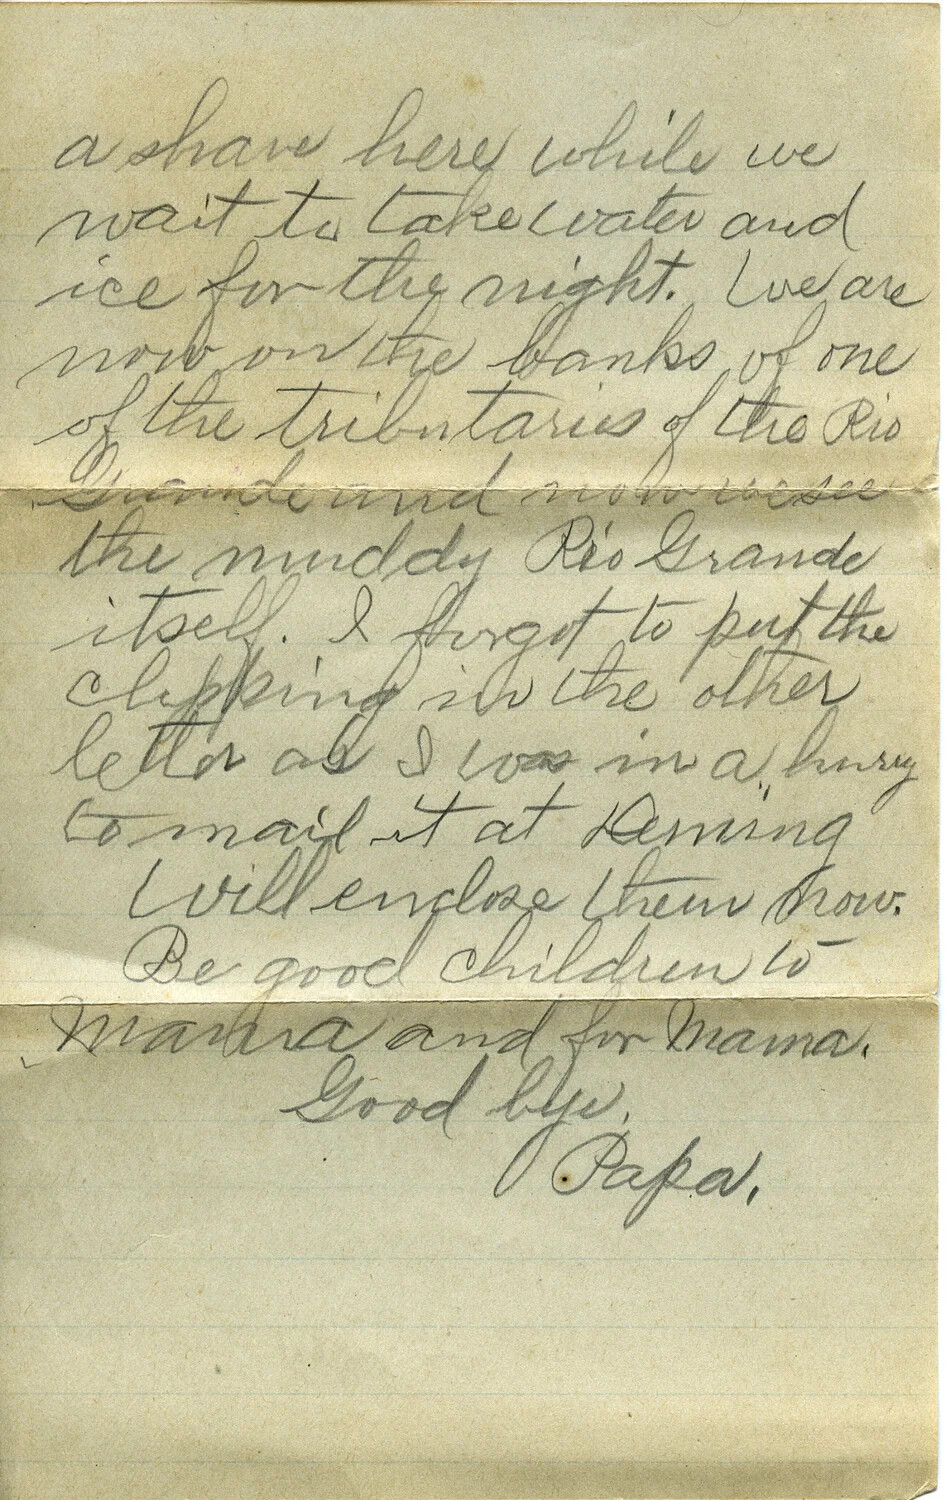 a shave here while we
wait to take water and
ice for the night. We are
now on the banks of one
of the tributaries of the Rio
Grande and now we see
the muddy Rio Grande
itself. I forgot to put the
clipping in the other
letter as I was in a hurry
to mail it at Deming
Will enclose them now.
Be good children to
Mama and for Mama.
Good bye.
Papa.